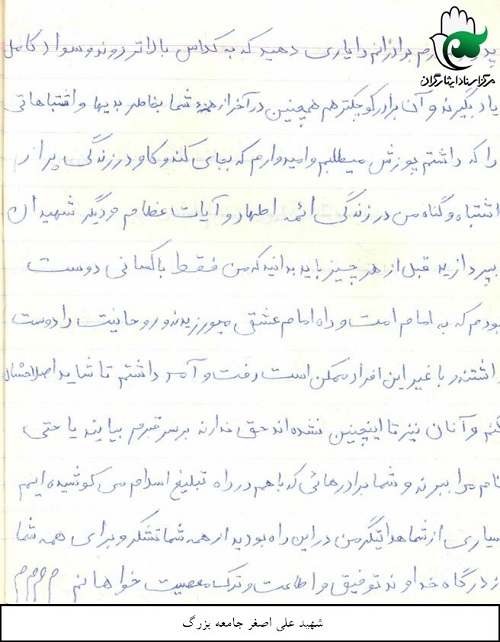 مرکز اسناد ایثارگران
برادرانم را یاری دهید که به کلاس بالاتر روند و سواد کامل
یاد بگیرند و آن برادر کوچکترم همچنین در آخر از همه شما بخاطر بدیها و اشتباهاتی
را که داشتم پوزش میطلبم و امیدوارم که بجای کند و کاو در زندگی پر از
اشتباه و گناه من در زندگی ائمه اطهار و آیات عظام و دیگر شهیدان
بپردازید قبل از هر چیز باید بدانید که من فقط با کسانی دوست
بودم که به امام امت و راه امام عشق میورزیدند و روحانیت را دوست
داشتند و با غیر این افراد ممکن است رفت و آمد داشتم تا شاید اصلاحشان
کنم و آنان نیز تا اینچنین نشده اند حق ندارند بر سر قبرم بیایند یا حتی
نام مرا ببرند و شما برادرهائی که با هم در راه تبلیغ اسلام می کوشیده ایم
بسیاری از شما هدایتگر من در این راه بودید از همه شما تشکر و برای همه شما
از درگاه خداوند توفیق و اطاعت و ترک معصیت خواهانم
شهید علی اصغر جامعه بزرگ